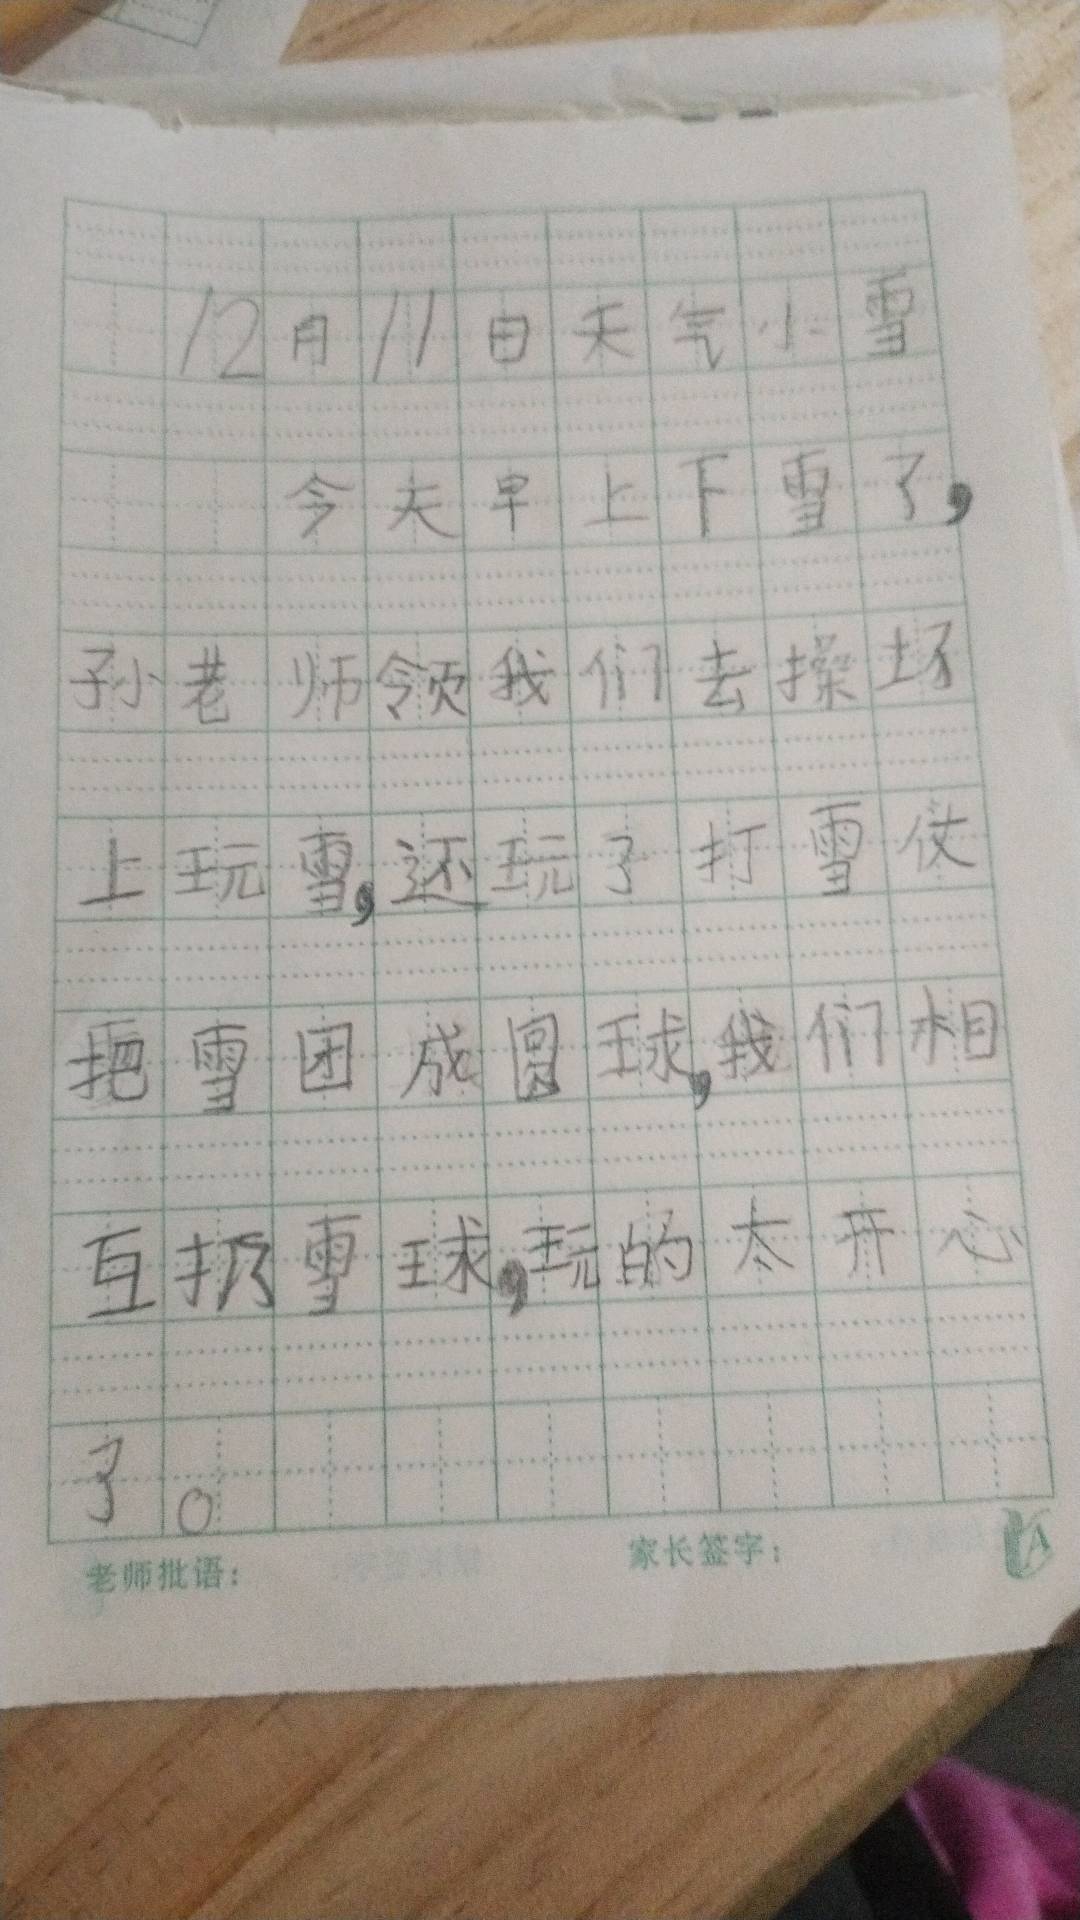 12月11日天气小雪
今天早上下雪了,
孙老师领我们去操场
上玩雪,还玩了打雪仗
把雪团成圆球,我们相
互扔雪球,玩的太开心
了。
老师批语:
家长签字: